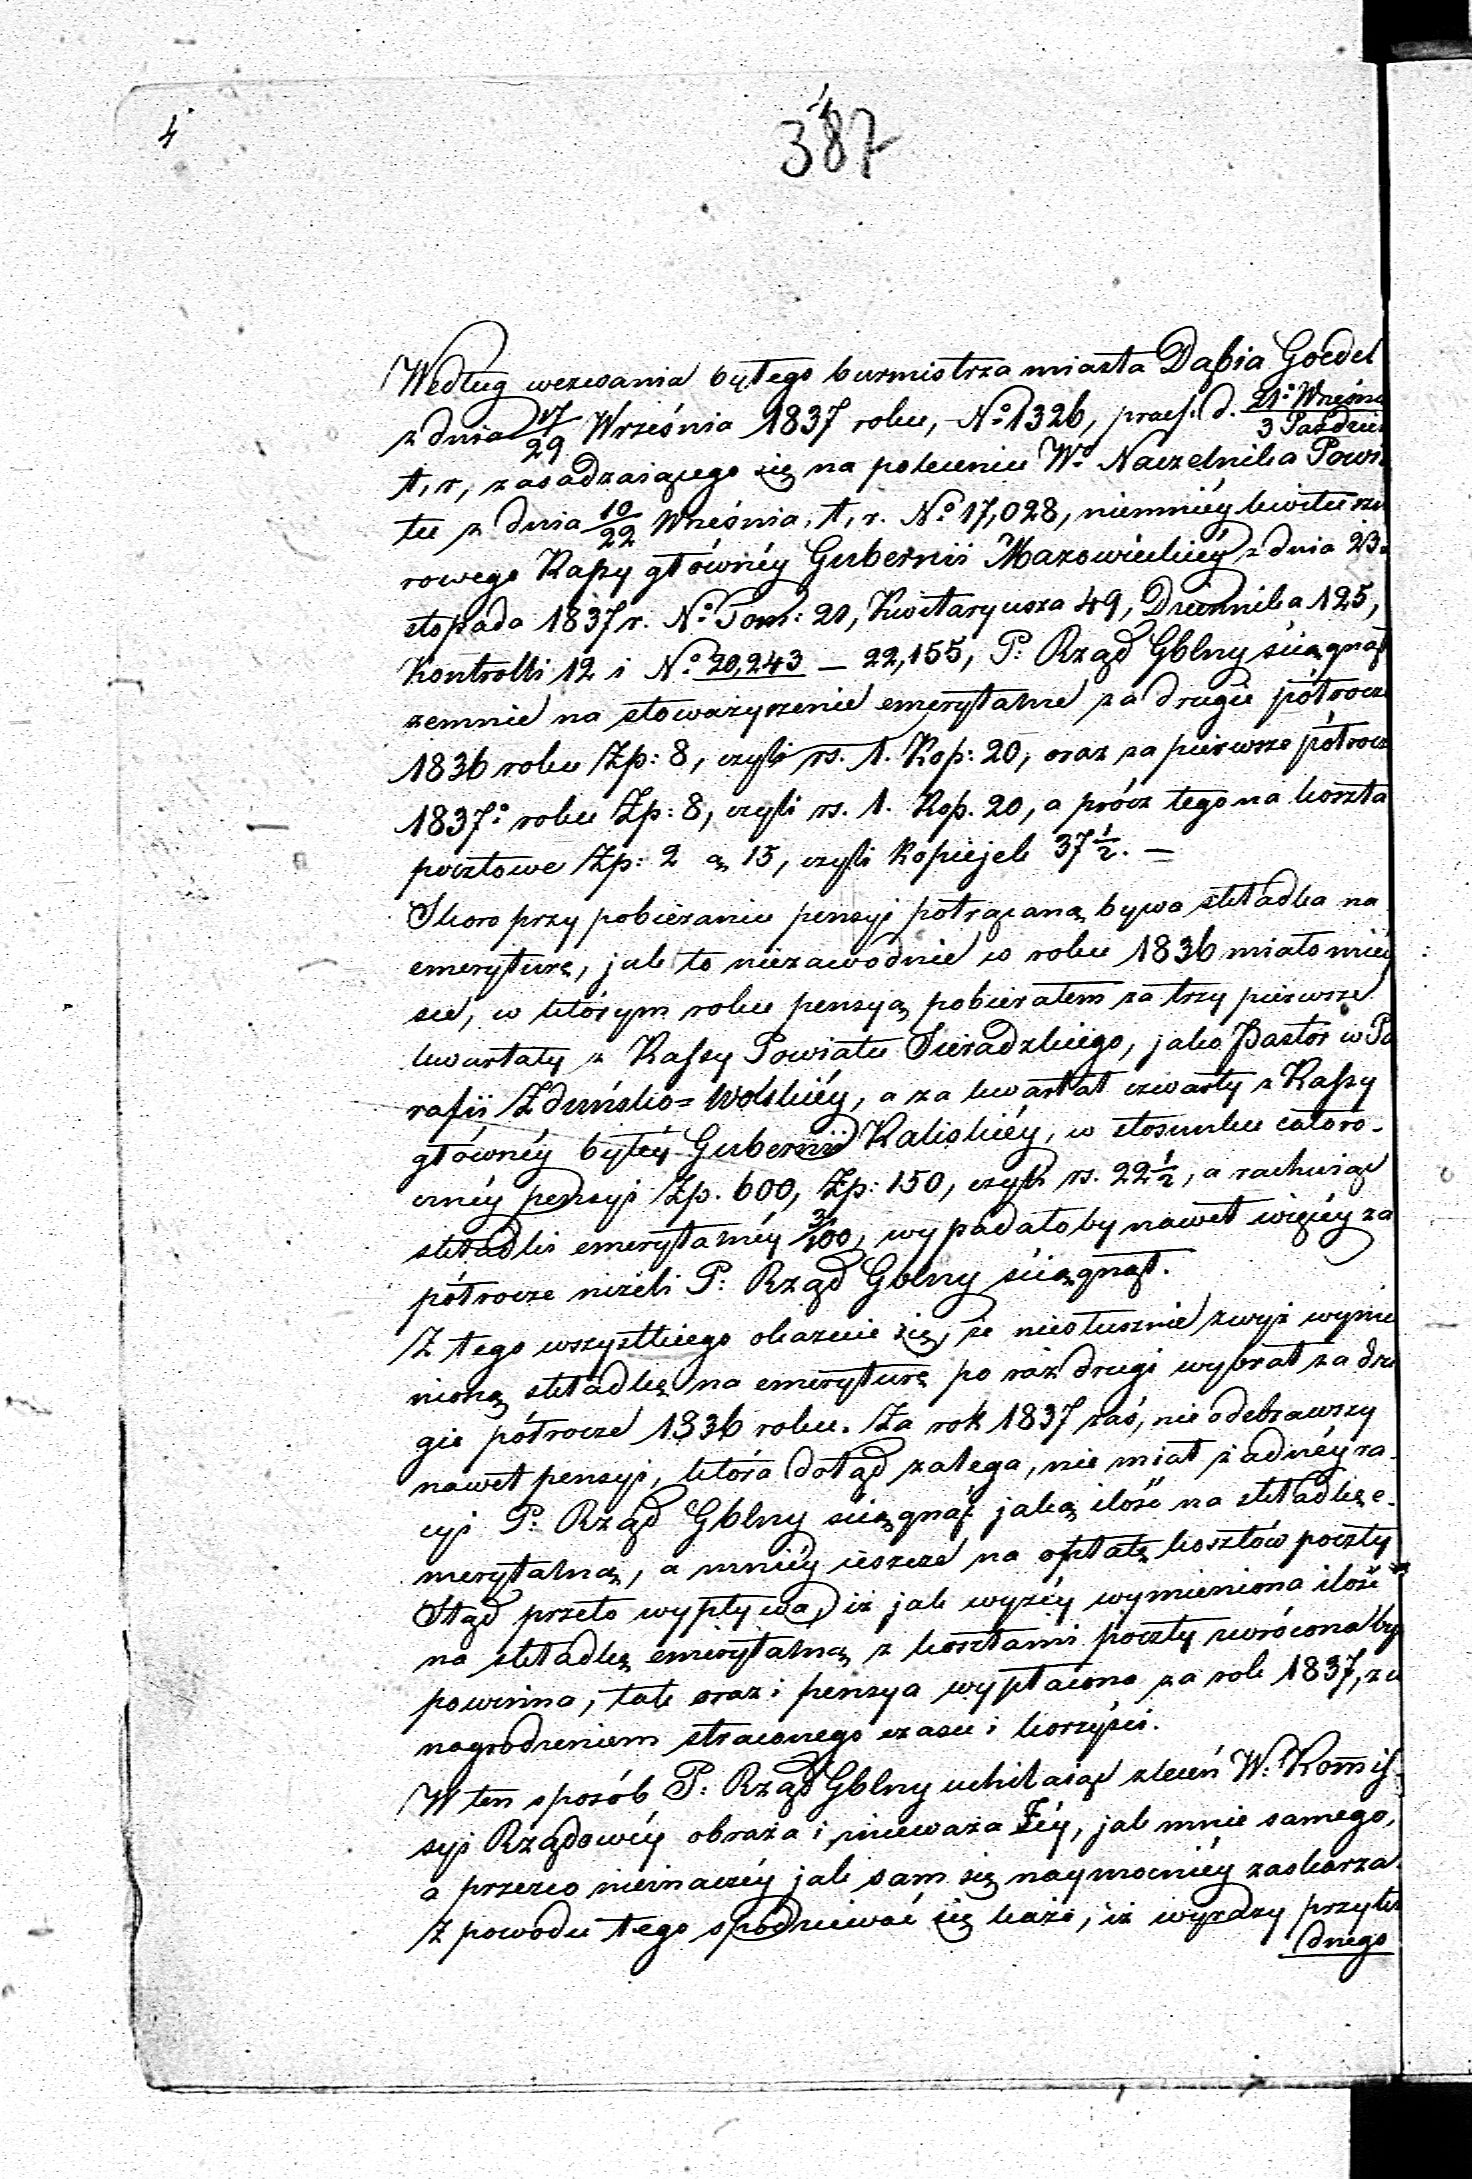 4
387
Według wezwania byłego burmistrza miasta Dąbia Goedel
z dnia 17/29 Września 1837 roku, No 1326, praes. d. 21o Wrześni / 3 Paździe
t, r, zasadzaiącego się na poleceniu Wo Naczelnika Powi
tu z dnia 10/22 Września, t, r. No 17,028, niemniéy kwitu sznu
rowego Kassy głównéy Gubernii Mazowieckiéy z dnia 23
stopada 1837 r. No Pom: 20, Kwitaryusza 49, Dziennika 125,
Kontrolli 12 i No 20,243 – 22,155, P: Rząd Gblny ściągnął
zemnie na stowarzyszenie emerytalne za drugie półrocze
1836 roku Zp: 8, czyli rs. 1. Kop: 20, oraz za pierwsze półrocz
1837o roku Zp: 8, czyli rs. 1. Kop. 20, a prócz tego na koszta
pocztowe Zp: 2 g 15, czyli Kopiejek 37 1/2. –
Skoro przy pobieraniu pensyi potrącaną bywa składka na
emeryturę, jak to niezawodnie w roku 1836 miało miey
sce, w którym roku pensyą pobierałem za trzy pierwsze
kwartały z Kassy Powiatu Sieradzkiego, jako Pastor w Pa
rafii Zduńsko=Wolskiéy, a za kwartał czwarty z Kassy
głównéy byłéy Gubernii Kaliskiéy, w stosunku całoro-
cznéy pensyi Zp. 600, Zp: 150, czyli rs. 22 1/2, a rachuiąc
składki emerytalnéy 3/100, wypadałoby nawet więcéy za
półrocze niżeli P: Rząd Gblny ściągnął.
Z tego wszystkiego okazuie się, że niesłusznie zwyż wymie
nioną składkę na emeryturę po raz drugi wybrał za dru
gie półrocze 1836 roku. Za rok 1837 zaś, nie odebrawszy
nawet pensyi, która dotąd zalega, nie miał żadnéy ra-
cyi P: Rząd Gblny ściągnąć jaką ilość na składkę e-
merytalną, a mniéy ieszcze na opłatę kosztów poczty
Stąd przeto wypływa, iż jak wyżéy wymieniona ilość
na składkę emerytalną z kosztami poczty zwrócona by
powinna, tak oraz i pensya wypłacona za rok 1837, z w
nagrodzeniem straconego czasu i korzyści.
W ten sposób P: Rząd Gblny uchilaiąc zleceń W: Komis-
syi Rządowéy obraża i znieważa Téy, jak mnie samego,
a przezco nieinaczéy jak sam się naymocniéy zaskarza.
Z powodu tego spodziewać się każe, iż wyrazy przykł
dnego